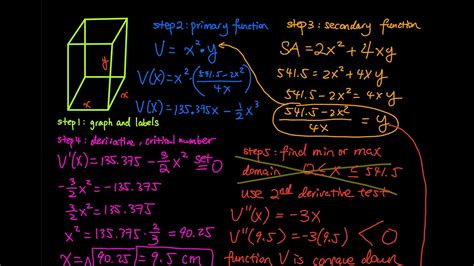 step2: primary function
V = x²·y
V(x) = x²·(541.5-2x²/4x)
V(x) = 135.375x - 1/2 x³
step3: secondary function
SA = 2x² + 4xy
541.5 = 2x² + 4xy
541.5 - 2x² = 4xy
541.5 - 2x²/4x = y
y
x
x
step1: graph and labels
step4: derivative, critical number
V'(x) = 135.375 - 3/2 x² set= 0
-3/2 x² = -135.375
3/2 x² = 135.375
x² = 135.375 · 2/3 = 90.25
x = √90.25 = 9.5 cm
step5: find min or max
domain 0 < x ≤ 541.5
use 2nd derivative test
V''(x) = -3x
V''(9.5) = -3(9.5) < 0
function V is concave down